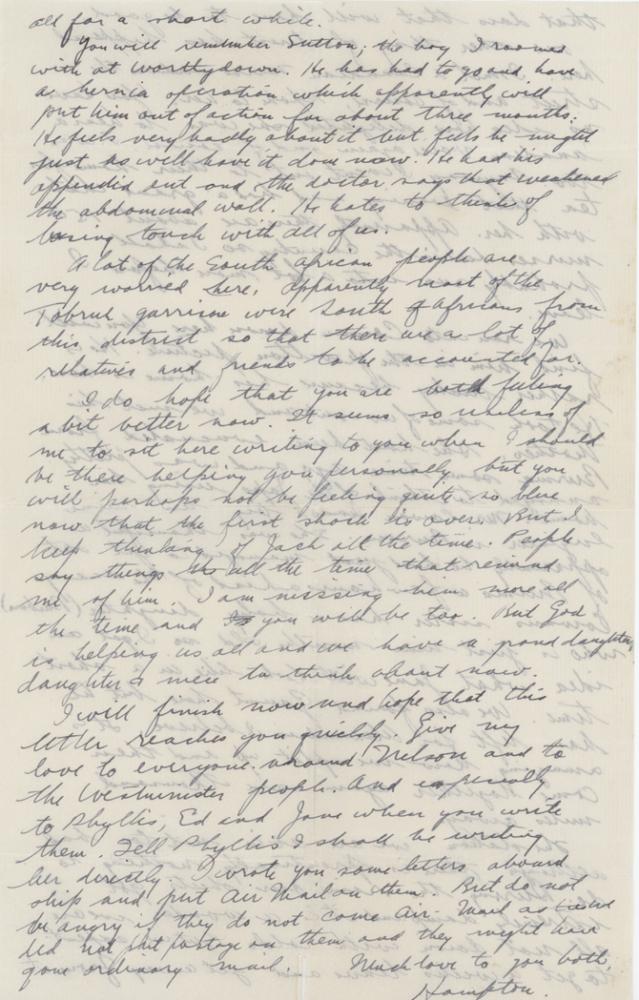 all for a short while.
You will remember Sutton; the boy I roomed
with at Worthydown. He has had to go and have
a hernia operation which apparently will
put him out of action for about three months.
He feels very badly about it but feels he might
just as well have it done now. He had his
appendix out and the doctor says that weakened
the abdominal wall. He hates to think of
losing touch with all of us.
A lot of the South African people are
very worried here, apparently most of the
Tobruk garrison were South Africans from
this district so that there are a lot of
relatives and friends to be accounted for.
I do hope that you are both feeling
a bit better now. It seems so useless of
me to sit here writing to you when I should
be there helping you personally but you
will perhaps not be feeling quite so blue
now that the first shock is over. But I
keep thinking of Jack all the time. People
say things all the time that remind
me of him. I am missing him more all
the time and you will be too. But God
is helping us all and we have a grand daughter,
daughter & niece to think about now.
I will finish now and hope that this
letter reaches you quickly. Give my
love to everyone around Nelson and to
the Westminster people. And especially
to Phyllis, Ed and Jane when you write
them. Tell Phyllis I shall be writing
her directly. I wrote you some letters aboard
ship and put Air Mail on them. But do not
be angry if they do not come Air-Mail as I
did not put postage on them and they might have
gone ordinary mail. Much love to you both,
Hampton.